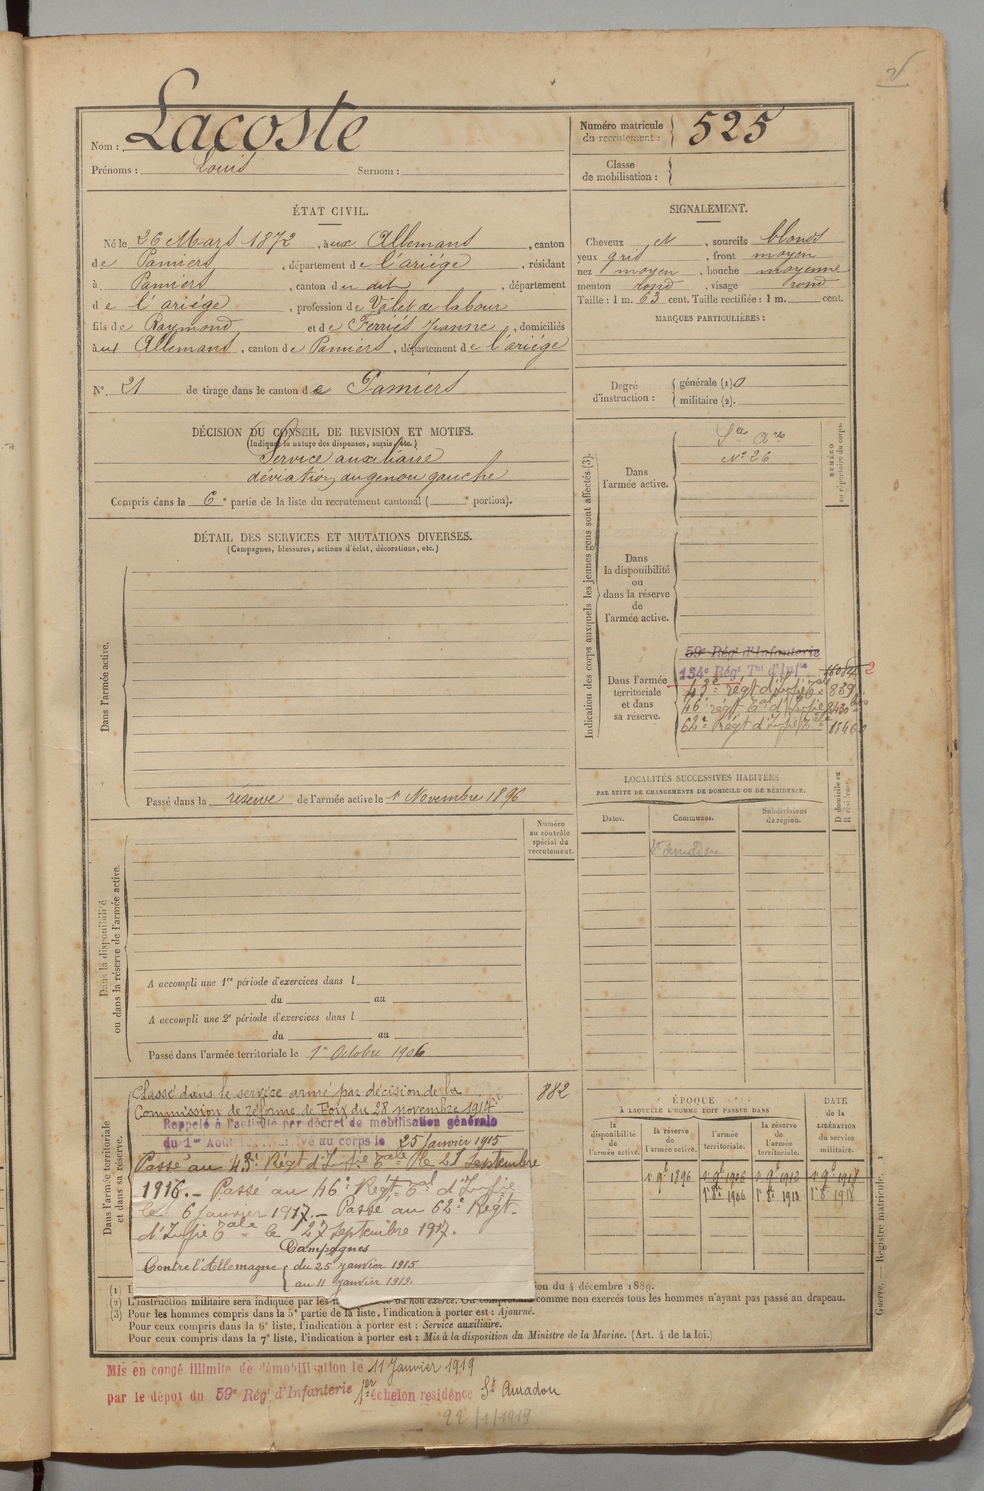 Nom : Lacoste
Prénoms : Louis Surnom :
Numéro matricule du recrutement : 525
Classe de mobilisation :
ÉTAT CIVIL.
Né le 26 Mars 1872, à ux Allemans, canton
de Pamiers, département de l'ariége, résidant
à Pamiers, canton du dit, département
de l'ariége, profession de Valet de labour
fils de Raymond et de Ferriés Jeanne, domiciliés
à ux Allemans, canton de Pamiers, département de l'ariége
N° 21 de tirage dans le canton de Pamiers
SIGNALEMENT.
Cheveux et, sourcils blonds
yeux gris, front moyen
nez moyen, bouche moyenne
menton rond, visage rond
Taille : 1 m. 63 cent. Taille rectifiée : 1 m. cent.
MARQUES PARTICULIÈRES :
Degré d'instruction : générale (1) 0
militaire (2).
DÉCISION DU CONSEIL DE REVISION ET MOTIFS.
(Indiquer la nature des dispenses, sursis, etc.)
Service auxiliaire
déviation du genou gauche
Compris dans la 6e partie de la liste du recrutement cantonal ( e portion).
DÉTAIL DES SERVICES ET MUTATIONS DIVERSES.
(Campagnes, blessures, actions d'éclat, décorations, etc.)
Dans l'armée active.
Passé dans la réserve de l'armée active le 1 Novembre 1896
Indication des corps auxquels les jeunes gens sont affectés (3).
NUMÉRO au répertoire du corps.
Dans l'armée active.
N° 26
Dans la disponibilité ou dans la réserve de l'armée active.
Dans l'armée territoriale et dans sa réserve.
59e Rég. d'Infanterie
134e Régt Tal d'Infie
43e regt d'Infie Tale 839
46e régt Tal d'Infie
62e Régt d'Infie Tale
LOCALITÉS SUCCESSIVES HABITÉES
PAR SUITE DE CHANGEMENTS DE DOMICILE OU DE RÉSIDENCE.
D domicile ou R résidence.
Dates. Communes. Subdivisions de région.
St amadou
Numéro au contrôle spécial du recrutement.
Dans la disponibilité ou dans la réserve de l'armée active.
A accompli une 1re période d'exercices dans l
du au
A accompli une 2e période d'exercices dans l
du au
Passé dans l'armée territoriale le 1er Octobre 1906
Dans l'armée territoriale et dans sa réserve.
882
Classé dans le service armé par décision de la
Commission de réforme de Foix du 28 novembre 1914
Rappelé à l'activité par décret de mobilisation générale
du 1er Août arrivé au corps le 25 Janvier 1915
Passé au 43e Régt d'Infie Tale le 21 septembre
1916. – Passé au 46e Régt Tal d'Infie
le 6 janvier 1917. – Passé au 62e Régt
d'Infie Tale le 27 septembre 1917.
Campagnes
Contre l'Allemagne du 25 janvier 1915
au 11 janvier 1919.
ÉPOQUE
À LAQUELLE L'HOMME DOIT PASSER DANS
DATE de la LIBÉRATION du service militaire.
la disponibilité de l'armée active. la réserve de l'armée active. l'armée territoriale. la réserve de l'armée territoriale.
1 9bre 1896 1 9bre 1906 1 9bre 1912 1 9bre 1918
1 8bre 1906 1 8bre 1918
(1)
on du 4 décembre 1889.
(2) L'instruction militaire sera indiquée par les ou non exercé. comme non exercés tous les hommes n'ayant pas passé au drapeau.
(3) Pour les hommes compris dans la 5e partie de la liste, l'indication à porter est : Ajourné.
Pour ceux compris dans la 6e liste, l'indication à porter est : Service auxiliaire.
Pour ceux compris dans la 7e liste, l'indication à porter est : Mis à la disposition du Ministre de la Marine. (Art. 4 de la loi.)
Guerre. Registre matricule. 1
Mis en congé illimité de démobilisation le 11 Janvier 1919
par le dépôt du 59e Rég. d'Infanterie 1er échelon résidence St Amadou
22/1/1919